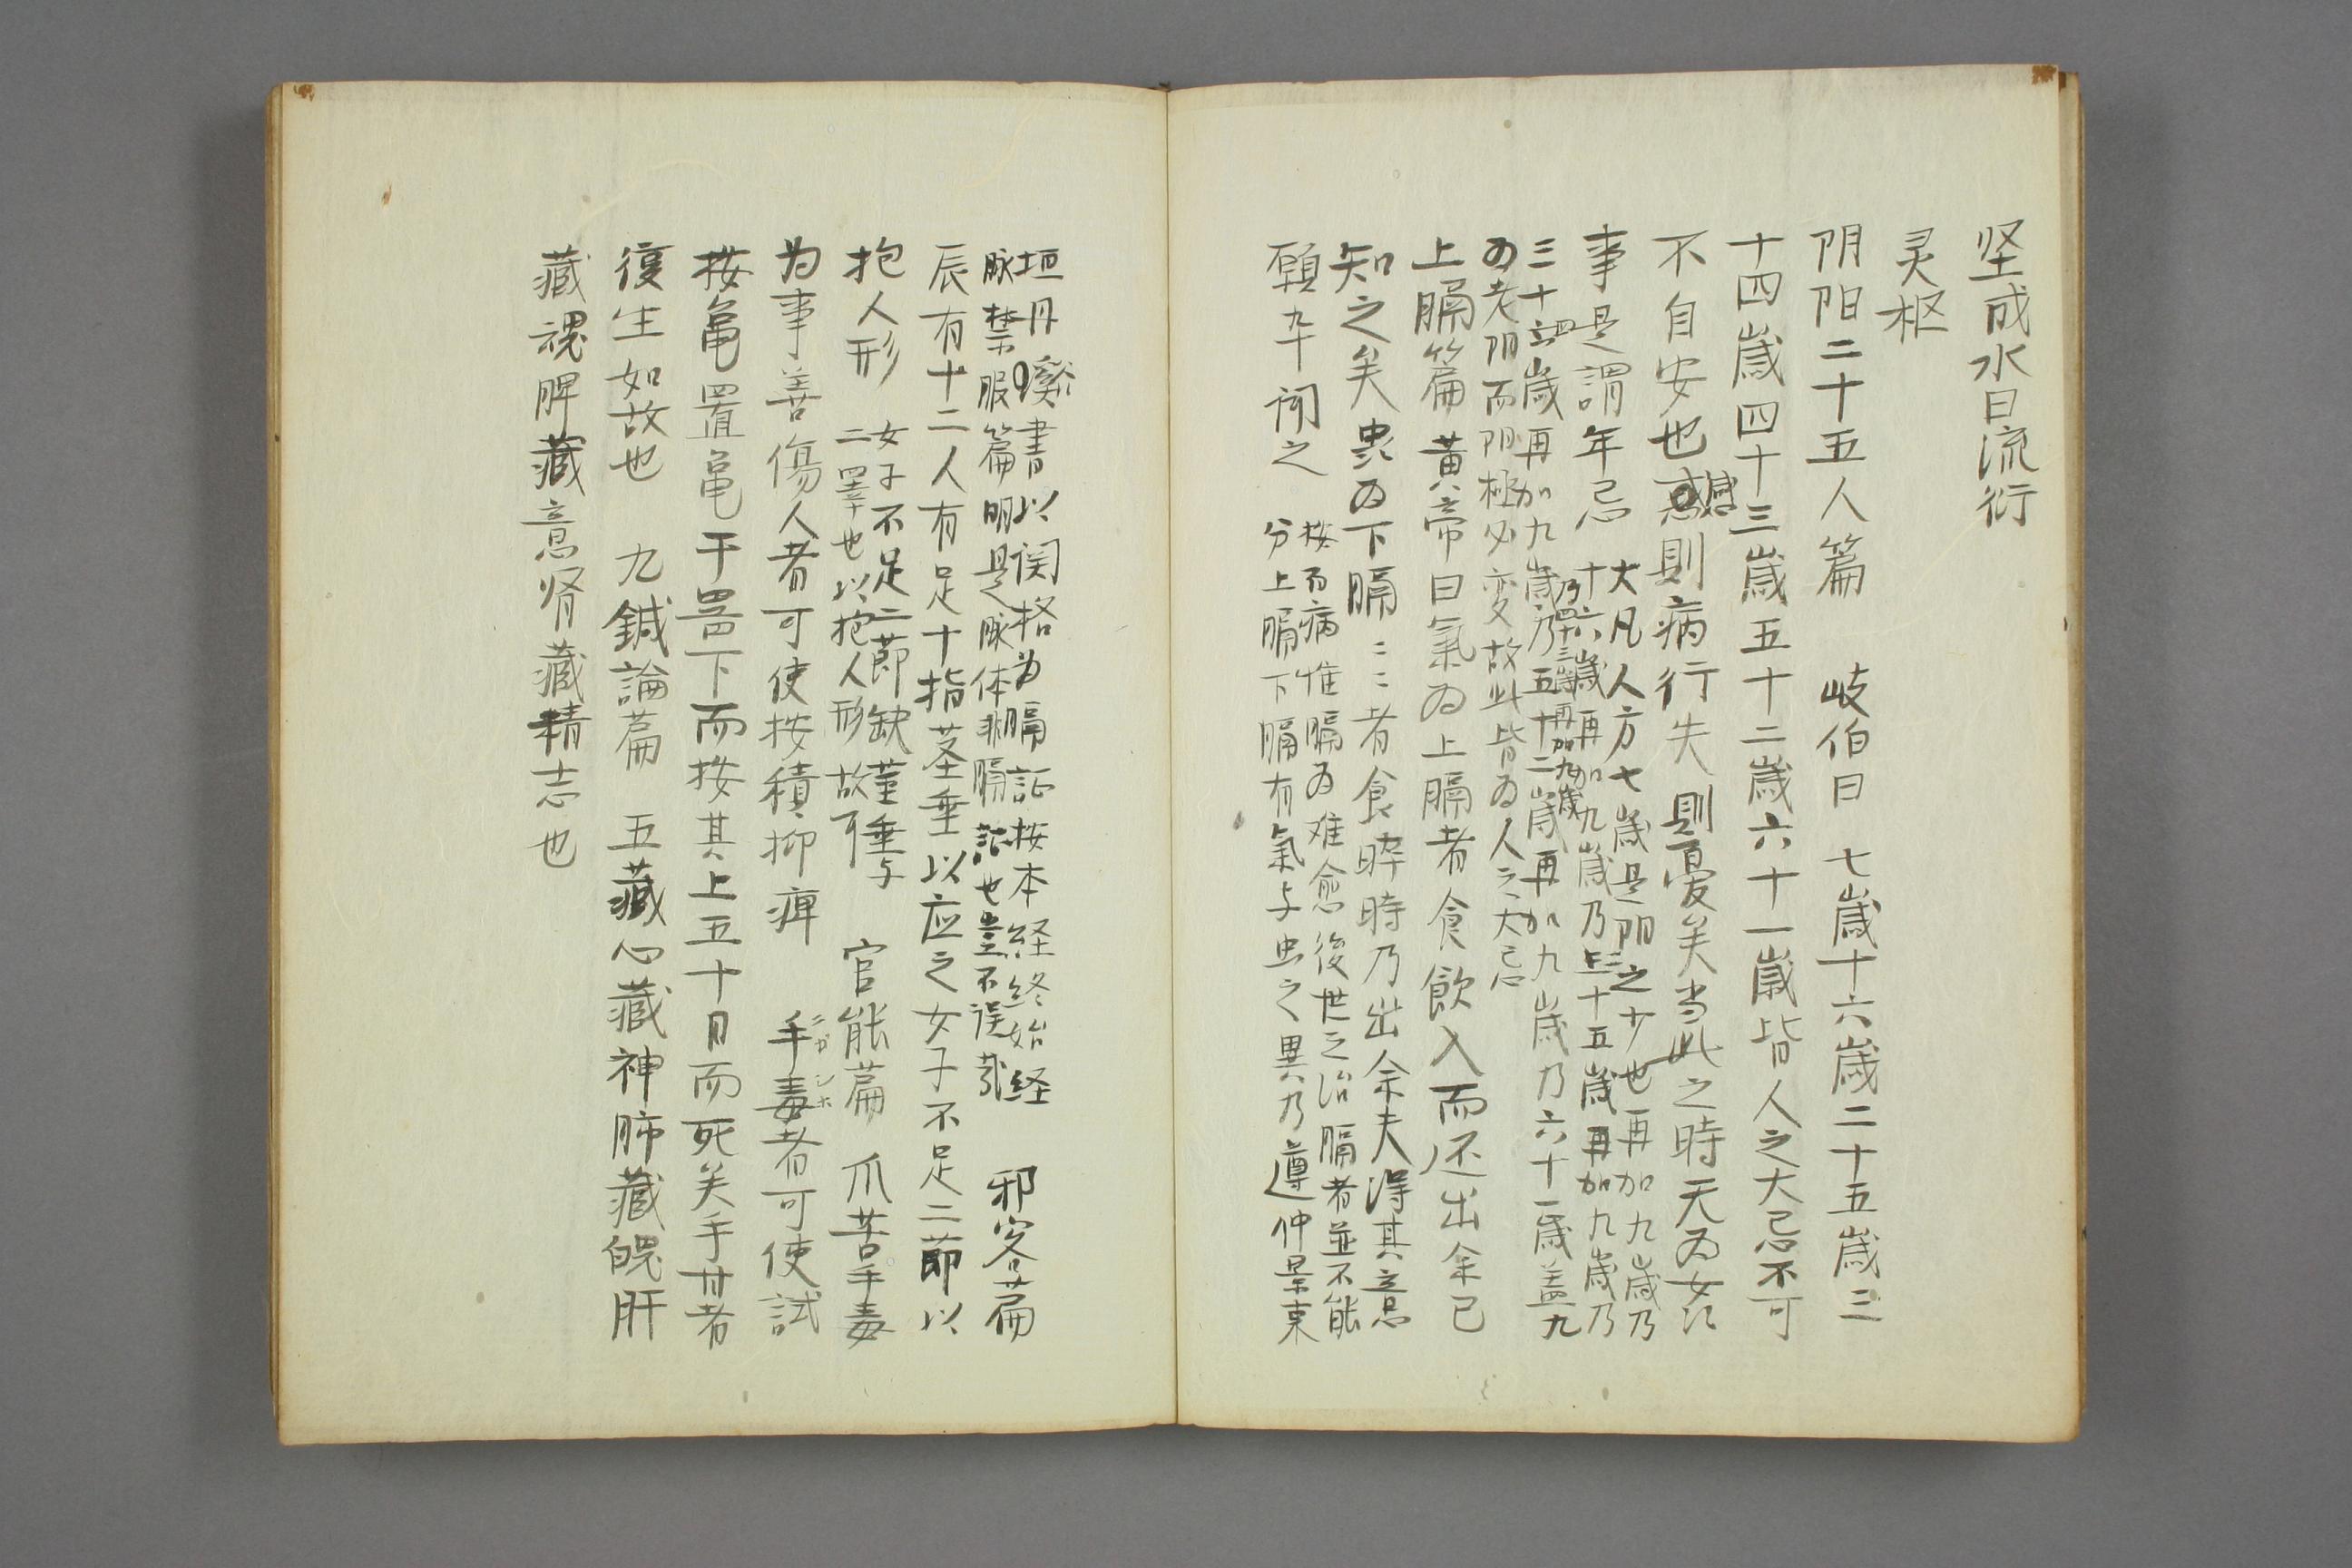 坚成水曰流衍
灵枢
阴阳二十五人篇　岐伯曰　七歳十六歳二十五歳三
十四歳四十三歳五十二歳六十一歳皆人之大忌不可
不自安也感則病行失則憂矣当此之時无為姦
事是謂年忌
大凡人方七歳是阳之少也再加九歳乃
十六歳再加九歳乃二十五歳再加九歳乃
三十四歳再加九歳乃四十三歳再加九歳
乃五十二歳再加九歳乃六十一歳盖九
為老阳而阳極必变故此皆為人之大忌
上膈篇黄帝曰氣為上膈者食飲入而还出余已
知之矣虫為下膈〻〻者食晬時乃出余未得其意
願卒闻之
按百病惟膈為难愈後世之治膈者並不能
分上膈下膈有氣与虫之異乃遵仲景東
垣丹溪書以関格为膈証按本経終始経
脉禁服篇明是脉体非膈証也豈不误哉　邪客篇
辰有十二人有足十指茎垂以应之女子不足二節以
抱人形
女子不足二節缺茎垂与
二睪也以抱人形故耳
官能篇　爪苦手毒
为事善傷人者可使按積抑痺　手毒者可使試
按亀置亀于噐下而按其上五十日而死矣手甘者
復生如故也　九鍼論篇　五藏心藏神肺藏魄肝
藏魂脾藏意腎藏精志也